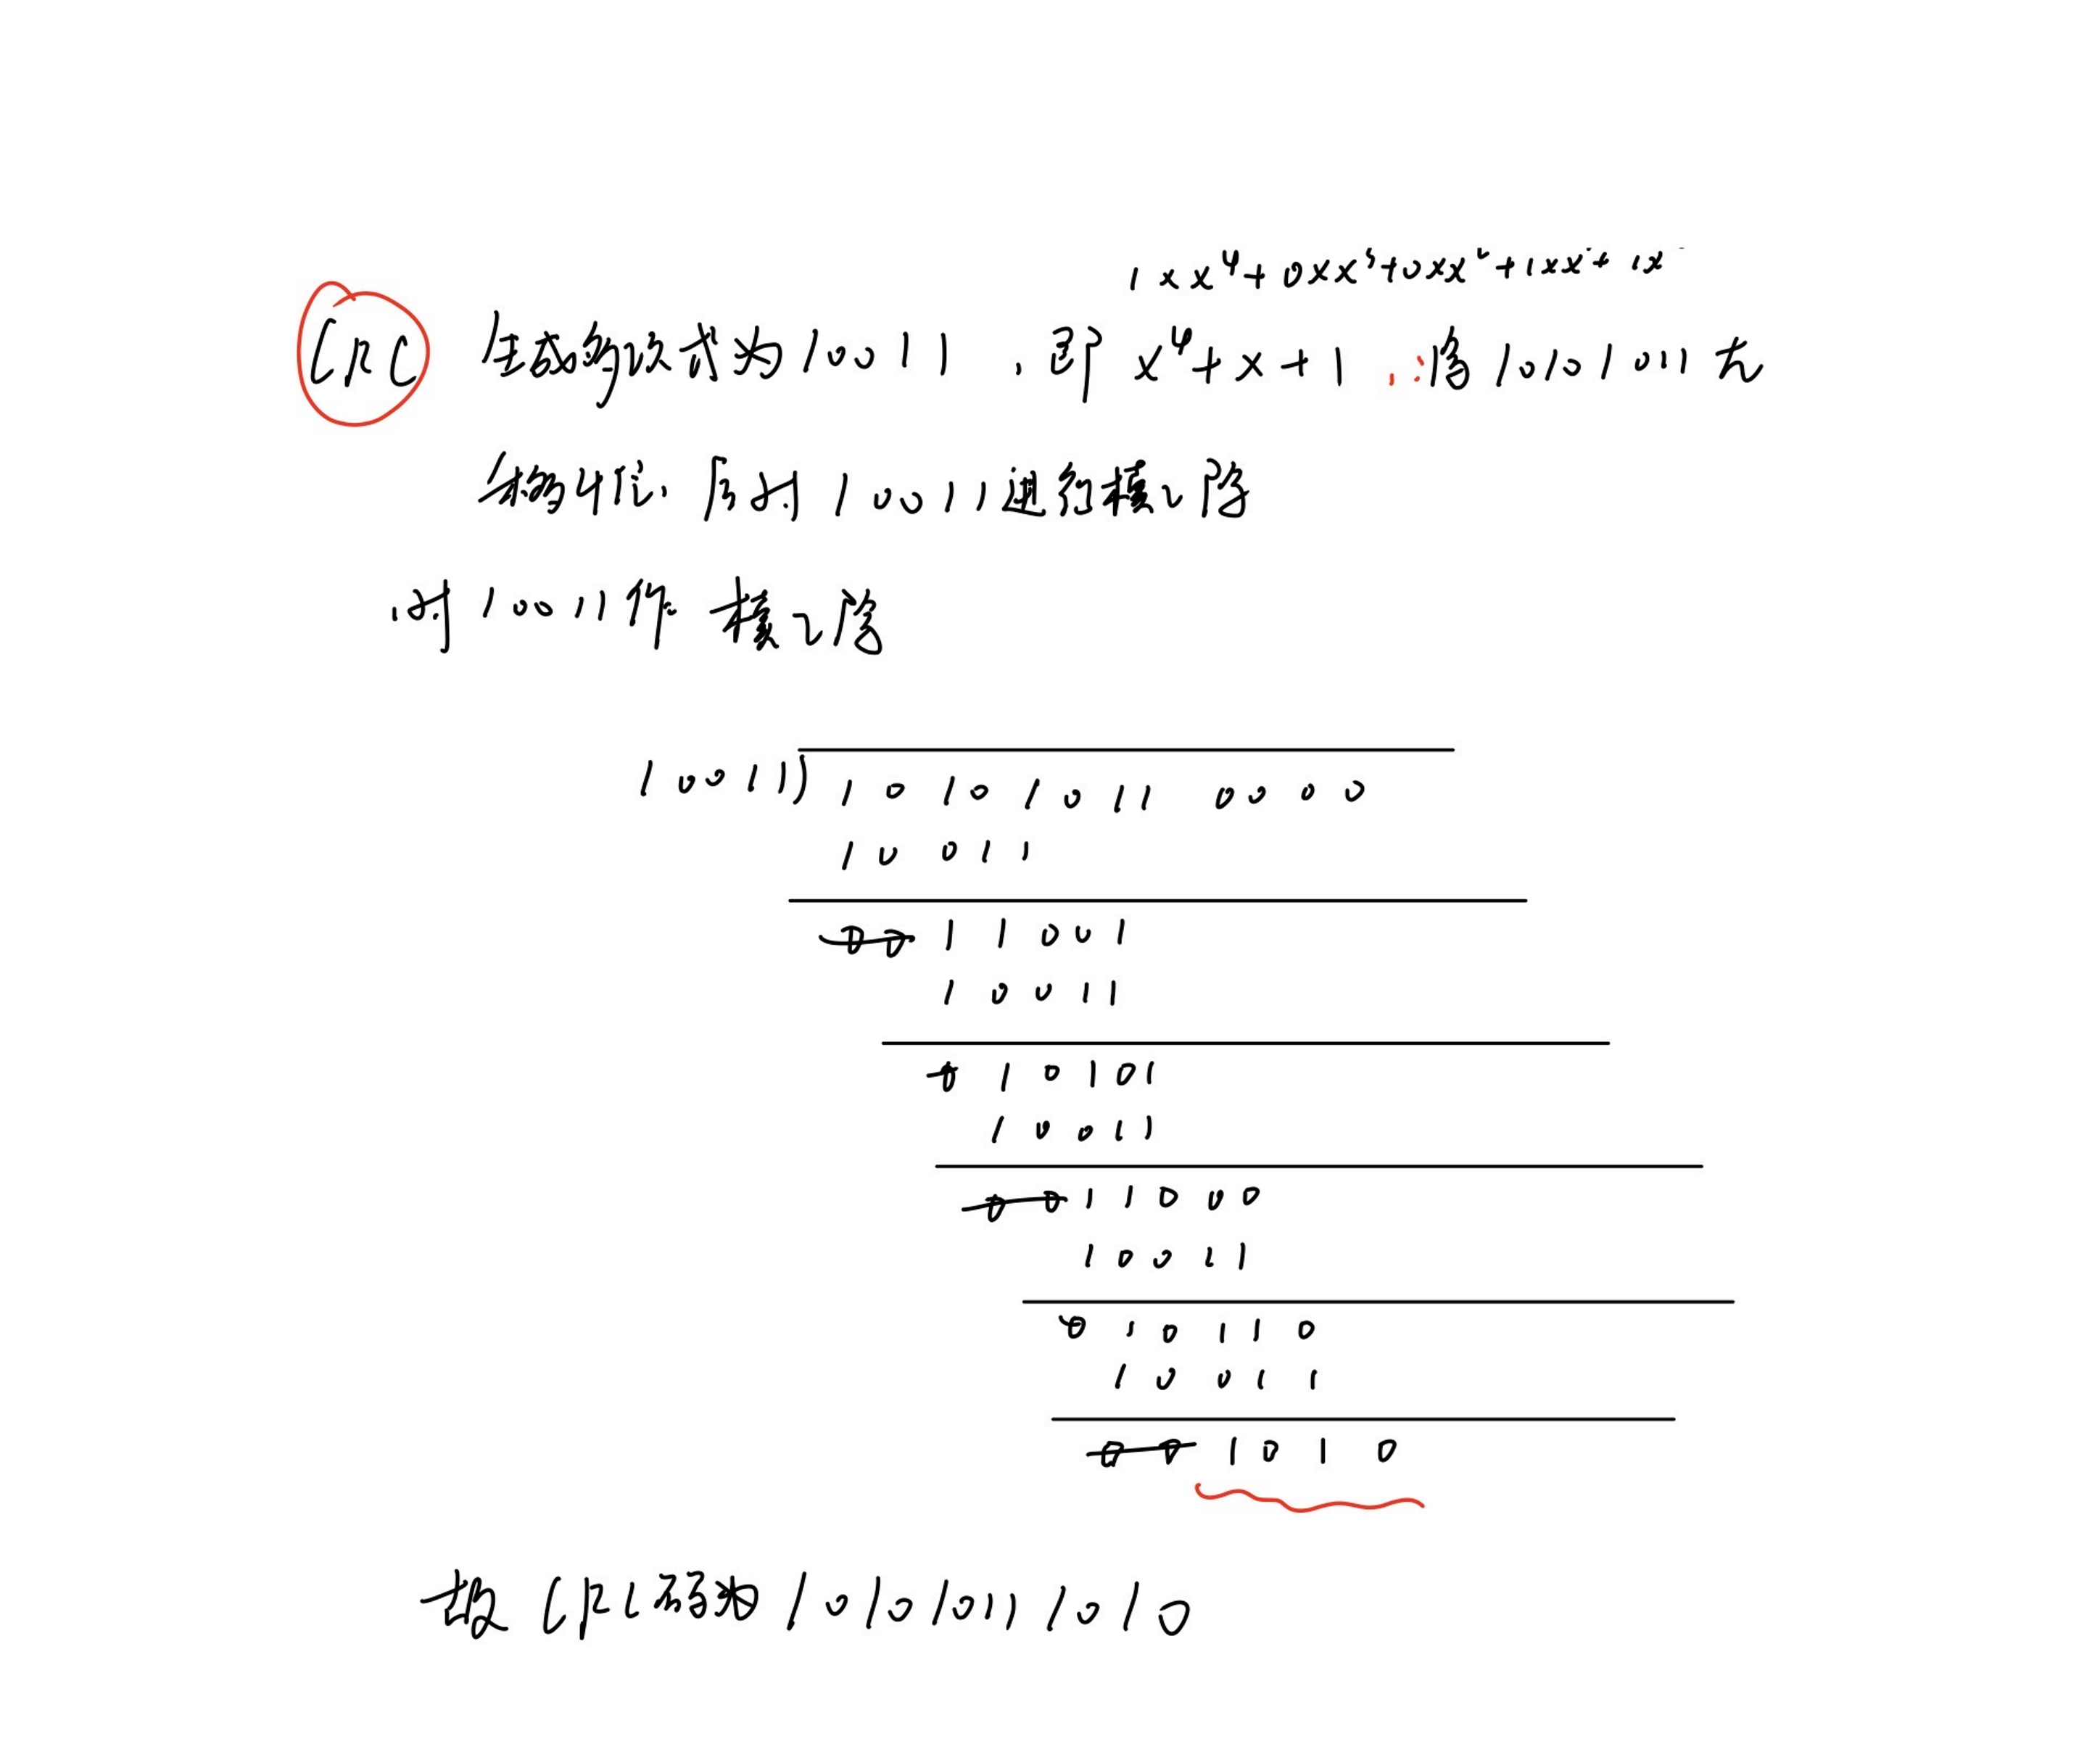 1×x⁴+0×x³+0×x²+1×x¹+1x
CRC 生成多项式为10011，即 x⁴+x+1 ∴将10101011左
移4位，后对10011进行模2除
对10011作模2除
10011) 10101011 0000
10011
00 11001
10011
0 10101
10011
00 11000
10011
0 10110
10011
00 1010
故CRC码为101010111010